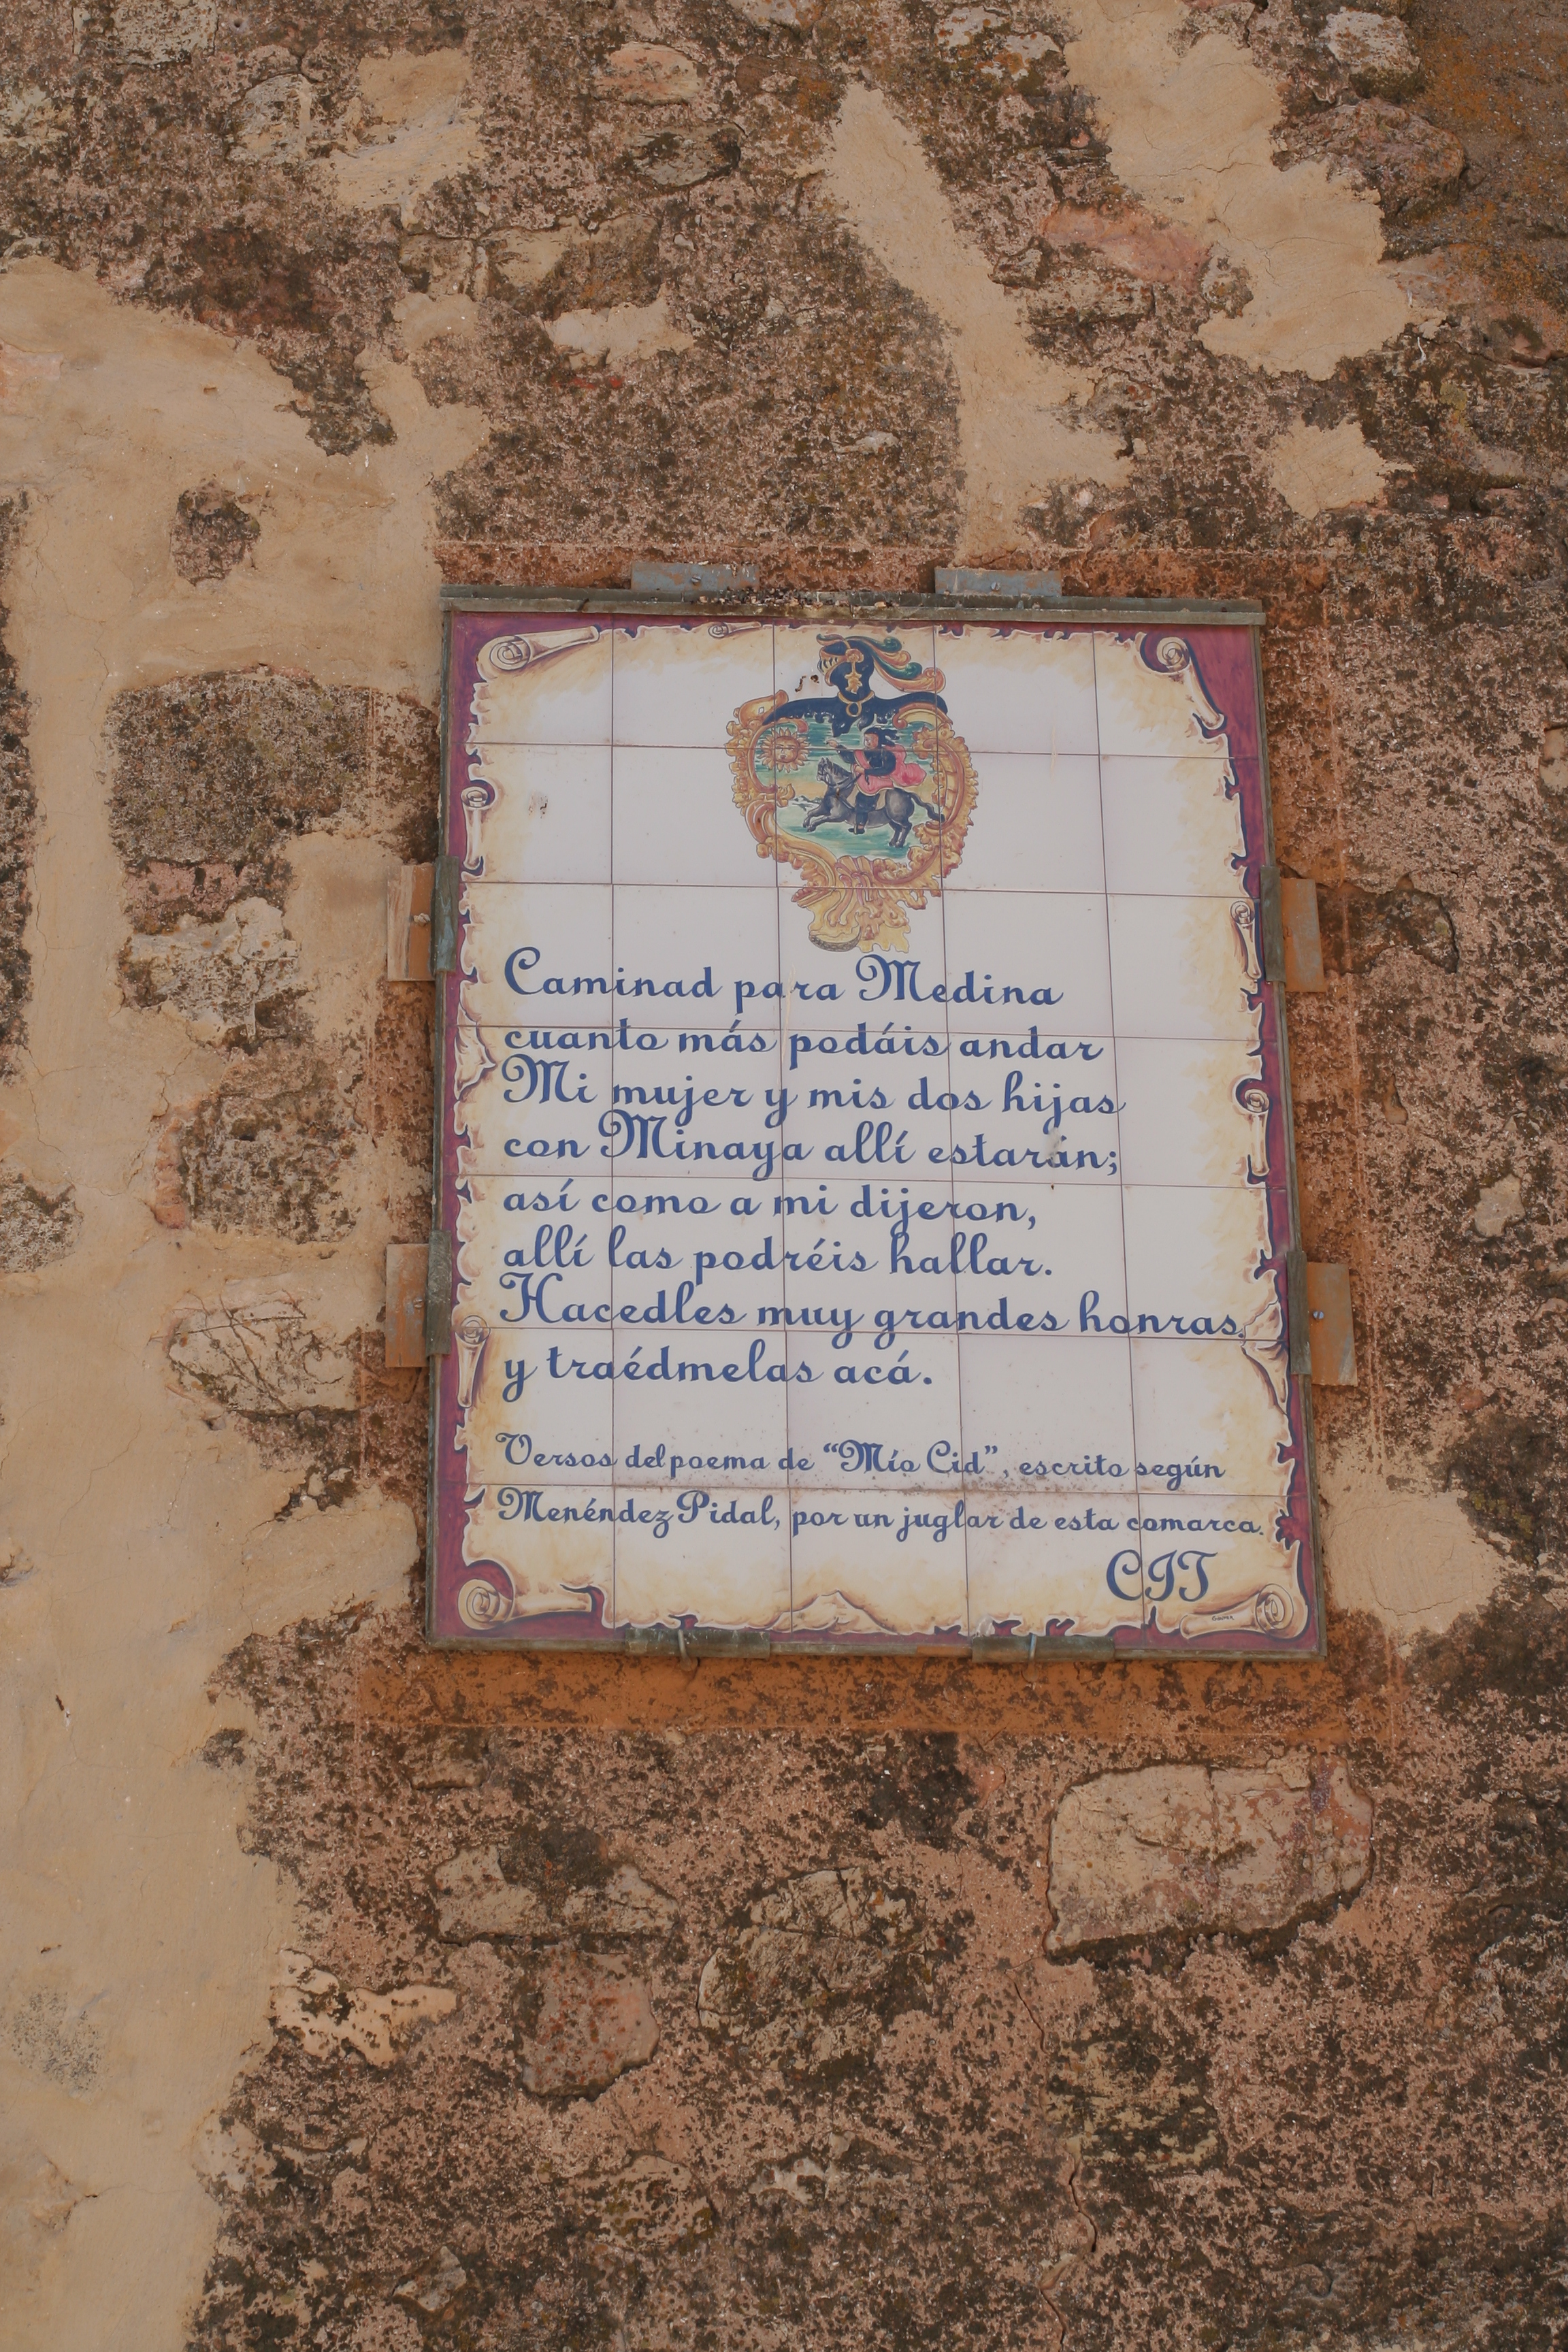 Caminad para Medina
cuanto más podáis andar
Mi mujer y mis dos hijas
con Minaya allí estarán;
así como a mi dijeron,
allí las podréis hallar.
Hacedles muy grandes honras,
y traédmelas acá.
Versos del poema de "Mío Cid", escrito según
Menéndez Pidal, por un juglar de esta comarca.
CIT